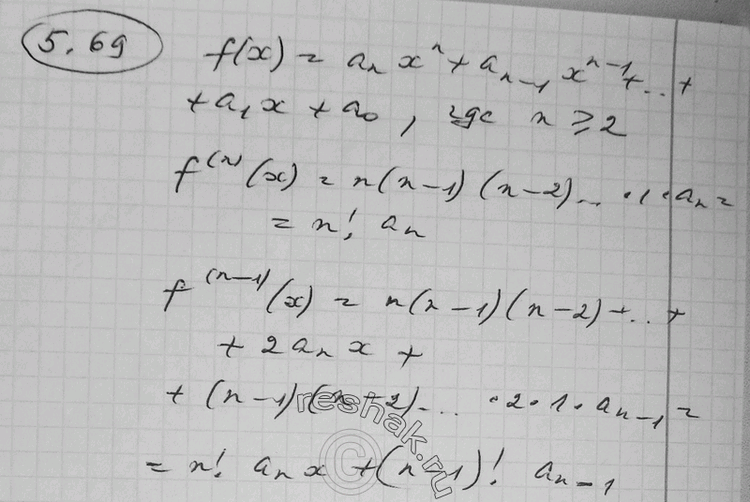 5.69
f(x) = aₙ xⁿ + aₙ₋₁ xⁿ⁻¹ + ... +
+ a₁ x + a₀, где n ⩾ 2
f⁽ⁿ⁾(x) = n(n-1)(n-2)... ·1·aₙ =
= n! aₙ
f⁽ⁿ⁻¹⁾(x) = n(n-1)(n-2)+...+
+ 2aₙ x +
+ (n-1)(n+2)... ·2·1·aₙ₋₁ =
= n! aₙ x + (n-1)! aₙ₋₁
reshak.ru
©